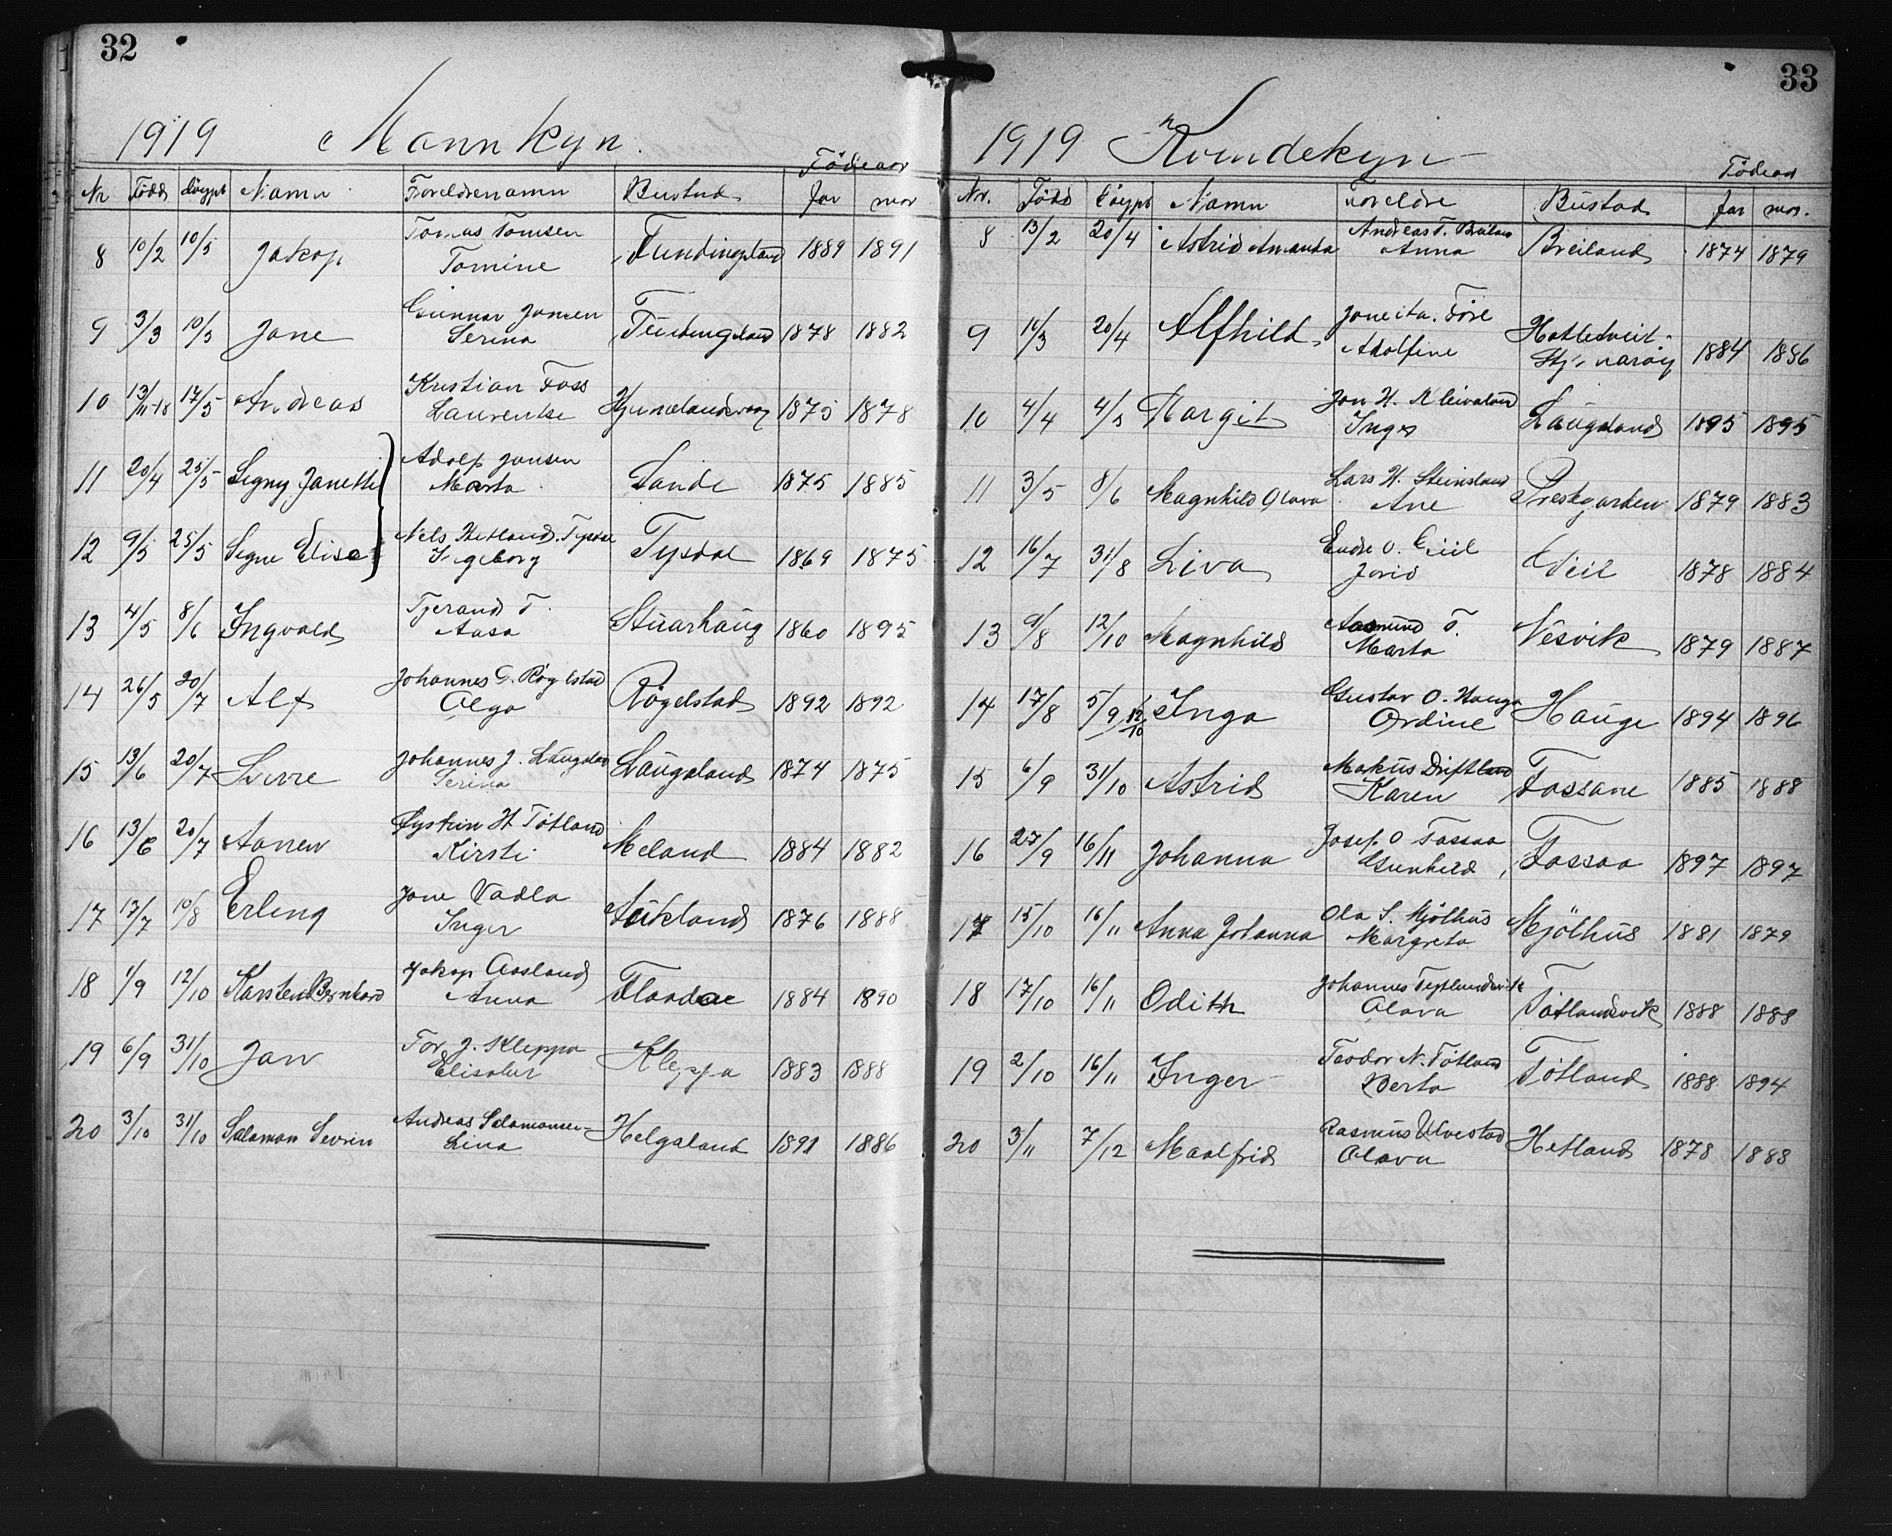 32
1919 Mannkyn.
Födeaar
Nr Född döypt Namn Foreldrenamn Bustad far mor
8 10/2 10/5 Jakop Tomas Tomsen Tomine 1889 1891
9 3/3 10/5 Jone Gunnar Jonsen Serina 1878 1882
10 13/11-18 17/5 Andreas Kristian Foss Laurentse 1875 1878
11 20/4 25/5 Signy Janette Adolf Jonsen Marta Sande 1875 1885
12 9/5 25/5 Signe Elise Nels Hetland. Tysdal Ingeborg Tysdal 1869 1875
13 4/5 8/6 Ingvald Tjerand T. Aasa Stuarhaug 1860 1895
14 26/5 20/7 Alf Johannes G. Røgelstad Olga Røgelstad 1892 1892
15 13/6 20/7 Sverre Johannes J. Laugaland Serina Laugaland 1874 1875
16 13/6 20/7 Aanen Øystein H Tøtland Kirsti Meland 1884 1882
17 17/7 10/8 Erling Jone Vadla Inger Aukland 1876 1888
18 1/9 12/10 Karsten Bernhard Jakop Aasland Anna 1884 1890
19 6/9 31/10 Jan Tor J. Kleppa Elisabet Kleppa 1883 1888
20 3/10 31/10 Salamon Sevrin Andreas Salamonsen Lina Helgaland 1891 1886
33
1919 Kvindekyn
Födeaar
Nr. Född döypt Namn Foreldre Bustad far mor.
8 13/2 20/4 Astrid Amanda Andreas T. Breiland Anna Breiland 1874 1879
9 11/3 20/4 Alfhild Adolfine 1884 1886
10 4/4 4/5 Margit Jon H. Kleivaland Inger Laugaland 1895 1895
11 3/5 8/6 Magnhild Olava Lars H. Steinsland Ane Prestgarden 1879 1883
12 16/7 31/8 Liva Endre O. Eiil Jorid 1878 1884
13 9/8 12/10 Magnhild Aasmund T. Marta Nesvik 1879 1887
14 17/8 5/9 12/10 Inga Gustav O. Hauge Ordine Hauge 1894 1896
15 6/9 31/10 Astrid Makus Driftland Karen Fossane 1885 1888
16 27/9 16/11 Johanna Josef O Fossaa Gunhild Fossaa 1897 1897
17 15/10 16/11 Anna Johanna Ola S. Mjölhus Margreta Mjölhus 1881 1879
18 17/10 16/11 Odith Johannes Tøtlandsvik Olava Tøtlandsvik 1888 1888
19 2/10 16/11 Inger Teodor N. Tøtland Berta Tøtland 1888 1894
20 3/11 7/12 Maalfrid Rasmus Ulvestad Olava Hetland 1878 1888